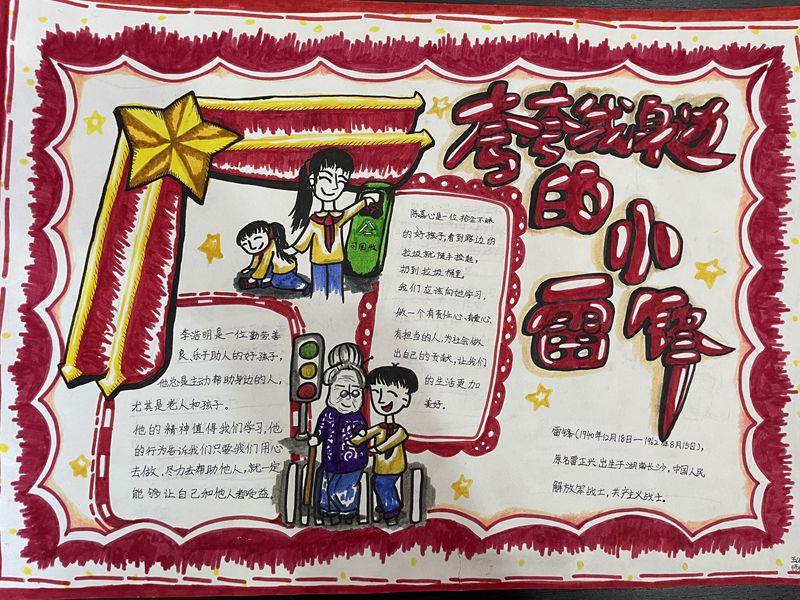 夸夸我身边
的
小
雷锋
可回收
陈嘉心是一位拾金不昧
的好孩子,看到路边的
垃圾就随手捡起,
扔到垃圾桶里。
我们应该向她学习。
做一个有责任心、有爱心、
有担当的人,为社会做
出自己的贡献,让我们
的生活更加
美好。
李浩明是一位勤劳善
良、乐于助人的好孩子,
他总是主动帮助身边的人,
尤其是老人和孩子。
他的精神值得我们学习,他
的行为告诉我们只要我们用心
去做,尽力去帮助他人,就一定
能够让自己和他人都受益。
雷锋(1940年12月18日—1962年8月15日),
原名雷正兴,出生于湖南长沙,中国人民
解放军战士,共产主义战士。